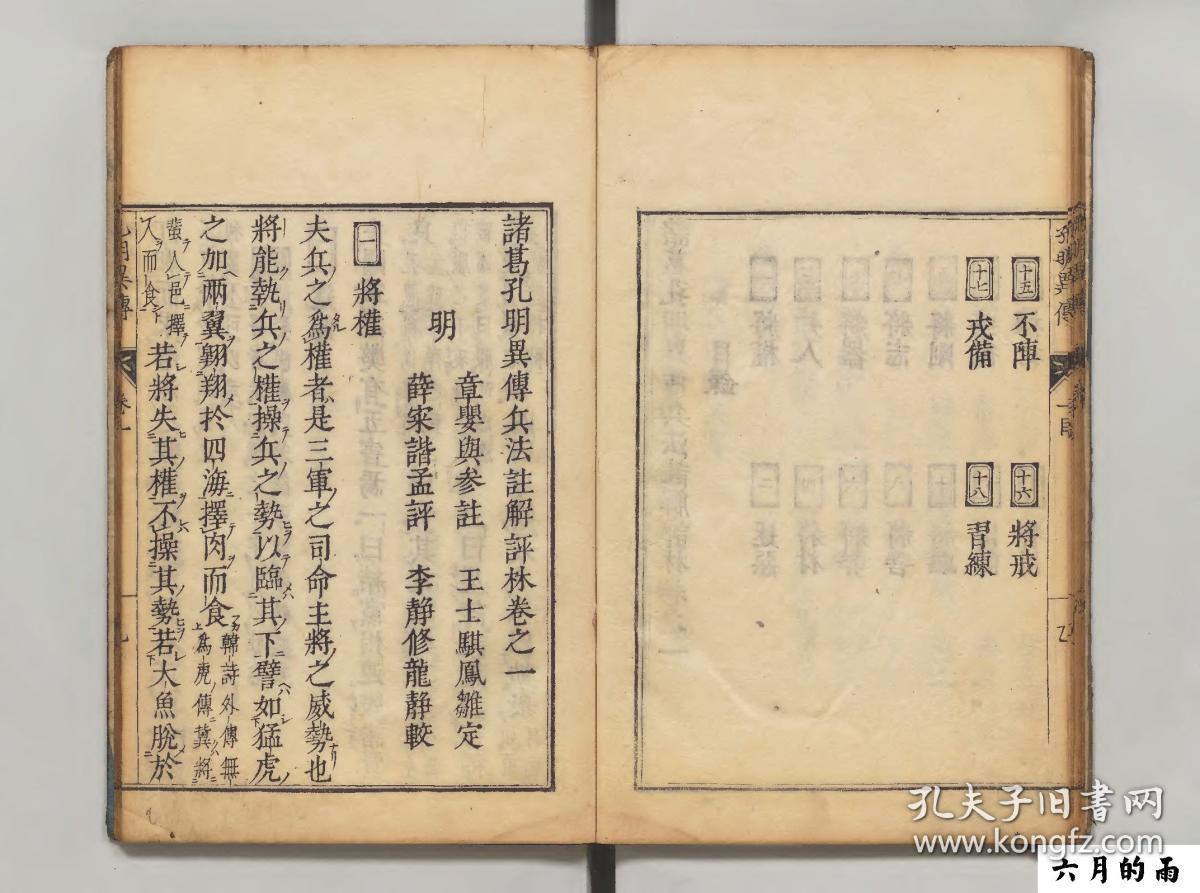 十五 不陣
十六 將戒
十七 戎備
十八 習練
諸葛孔明異傳兵法註解評林卷之一
明
章嬰與參註 王士騏鳳雛定
薛寀諧孟評 李靜修龍靜較
一 將權
夫兵之爲權者是三軍之司命主將之威勢也
將能執兵之權操兵之勢以臨其下譬如猛虎
之加兩翼翺翔於四海擇肉而食韓詩外傳無爲虎傳冀將
蜚人邑擇人而食若將失其權不操其勢若大魚脫於
孔夫子旧書网
www.kongfz.com
六月的雨